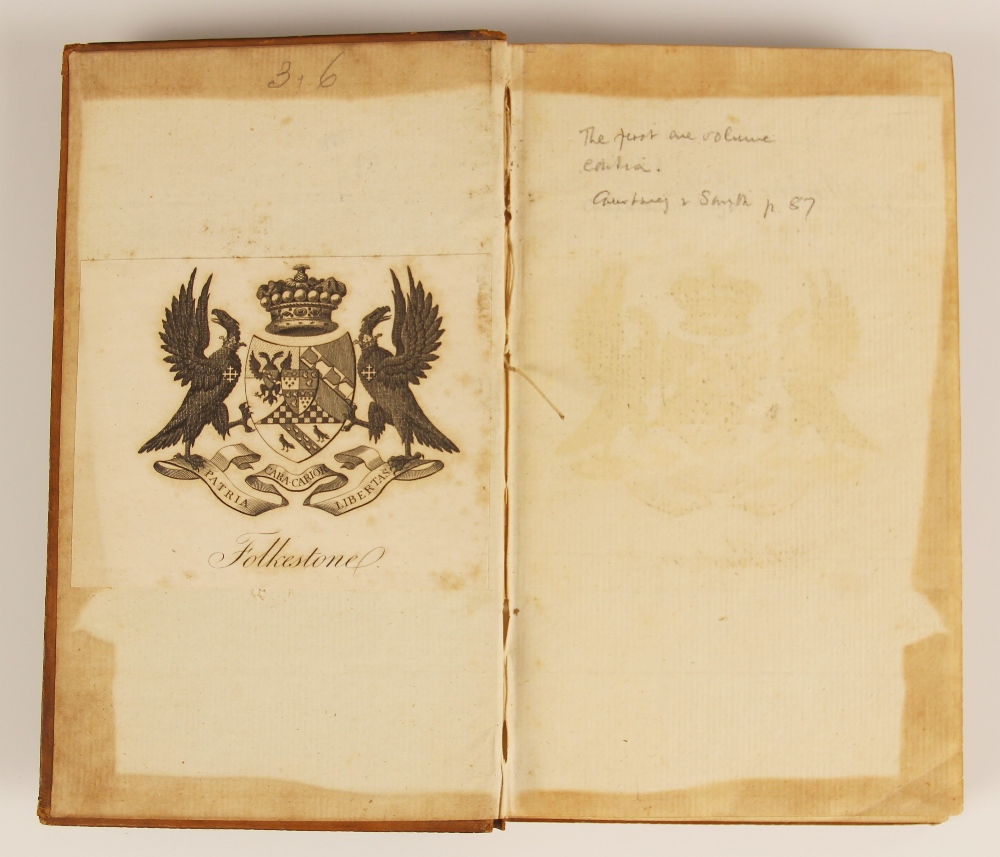 3, 6
PATRIA CARA·CARIOR LIBERTAS
Folkestone.
The first one volume
edition.
Courtney & Smyth p 87